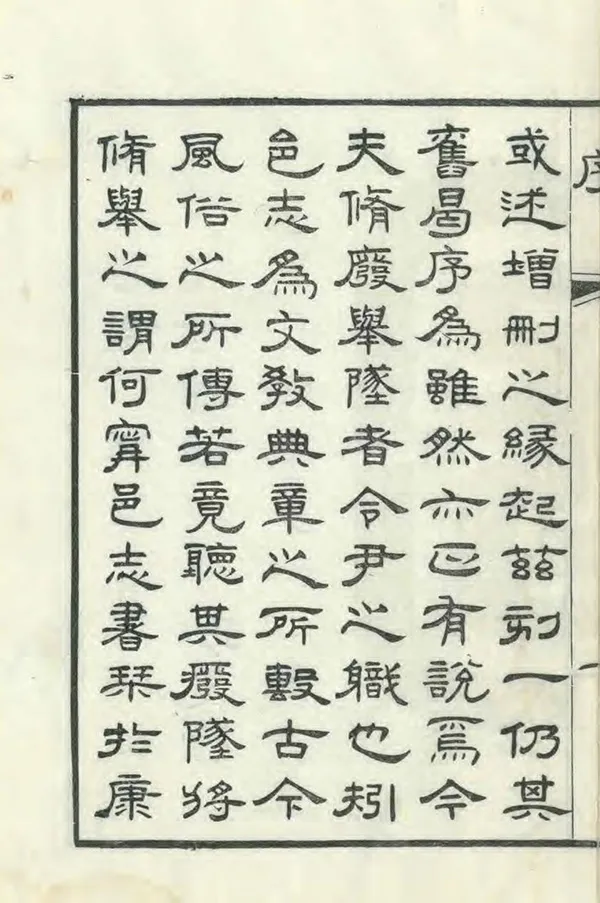 序
或述增刪之緣起茲刻一仍其
舊曷序為雖然亦正有說焉今
夫脩廢舉墜者令尹之職也矧
邑志為文教典章之所繫古今
風俗之所傳若竟聽其廢墜將
脩舉之謂何甯邑志書栞於康